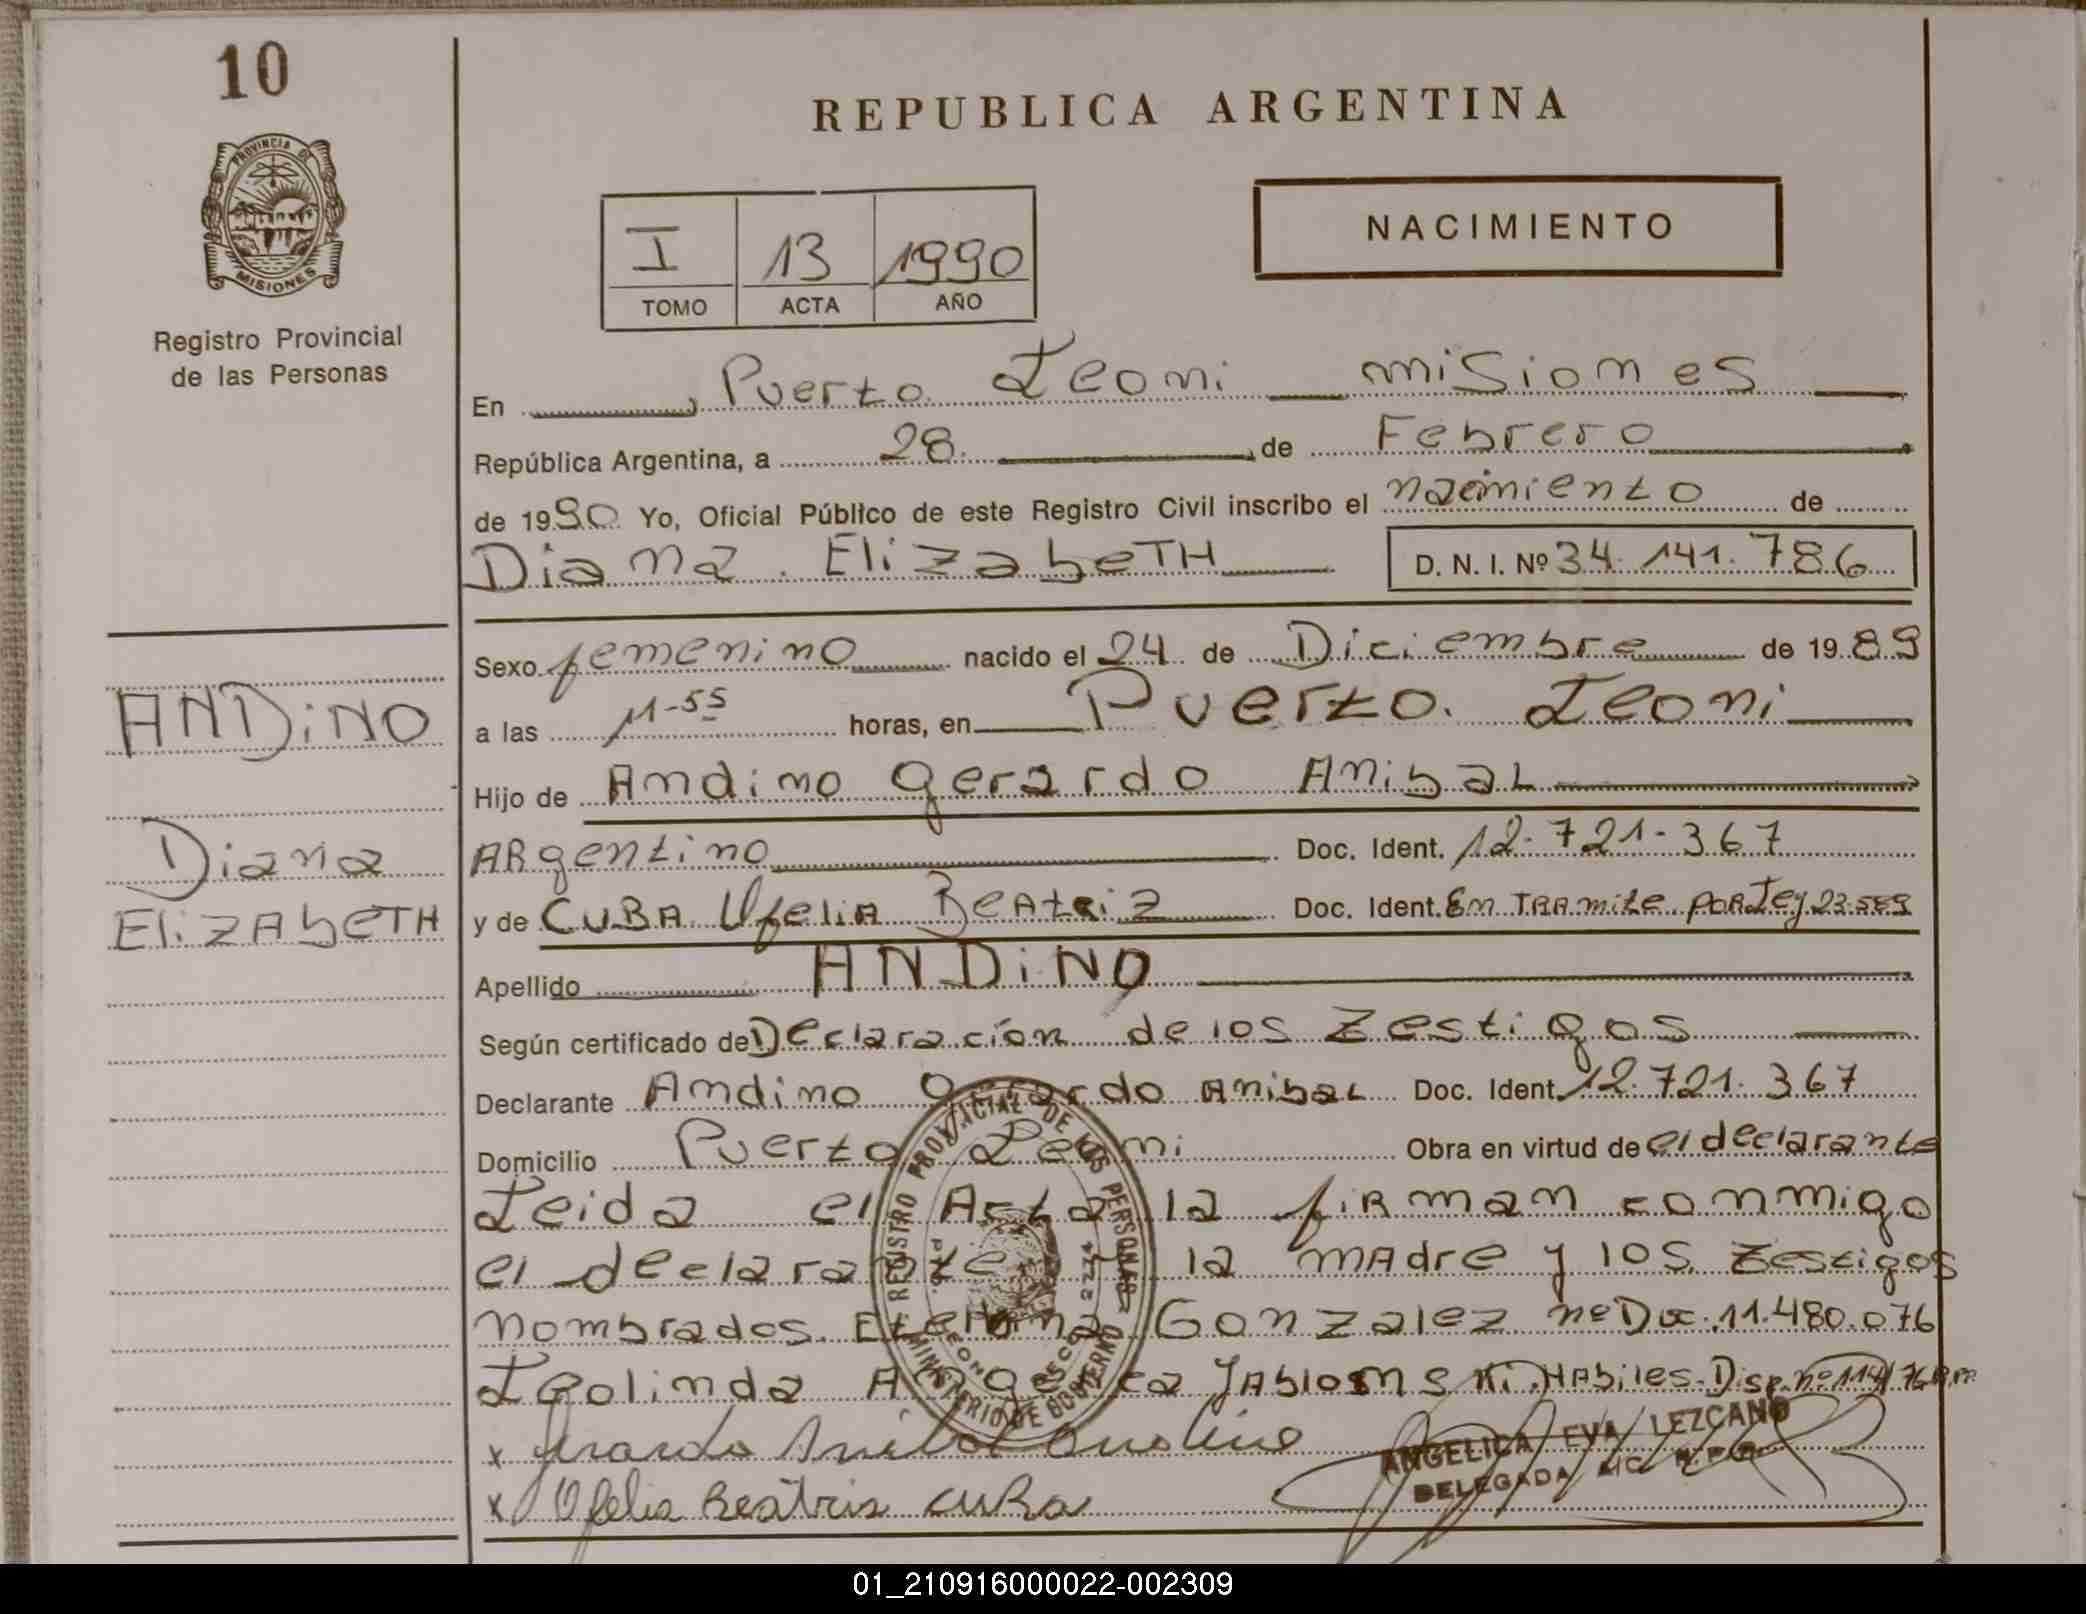 10
REPUBLICA ARGENTINA
PROVINCIA DE
MISIONES
Registro Provincial
de las Personas
I 13 1990
TOMO ACTA AÑO
NACIMIENTO
En Puerto Leoni misiones
República Argentina, a 28 de Febrero
de 1990 Yo, Oficial Público de este Registro Civil inscribo el nacimiento de
Diana Elizabeth D. N. I. Nº 34.141.786
Sexo femenino nacido el 24 de Diciembre de 1989
ANDINO
a las 11-55 horas, en Puerto Leoni
Hijo de Andino Gerardo Anibal
Diana
Argentino Doc. Ident. 12-721-367
ElizabeTH
y de CUBA Ofelia Beatriz Doc. Ident. En Tramite por Ley 23.589
Apellido ANDINO
Según certificado de Declaración de los testigos
Declarante Andino Gerardo Anibal Doc. Ident. 12.721.367
Domicilio Puerto Leoni Obra en virtud de el declarante
Leida el Acta la firman conmigo
el declarante y la madre y los testigos
nombrados Gonzalez nº Doc. 11.480.076
Leolinda Angelica Jablomski Habiles. Disp. nº 114/76
REGISTRO PROVINCIAL DE LAS PERSONAS
MINISTERIO DE GOBIERNO
x Gerardo Anibal Andino
ANGELICA EVA LEZCANO
DELEGADA
x Ofelia Beatris Cuba
01_210916000022-002309